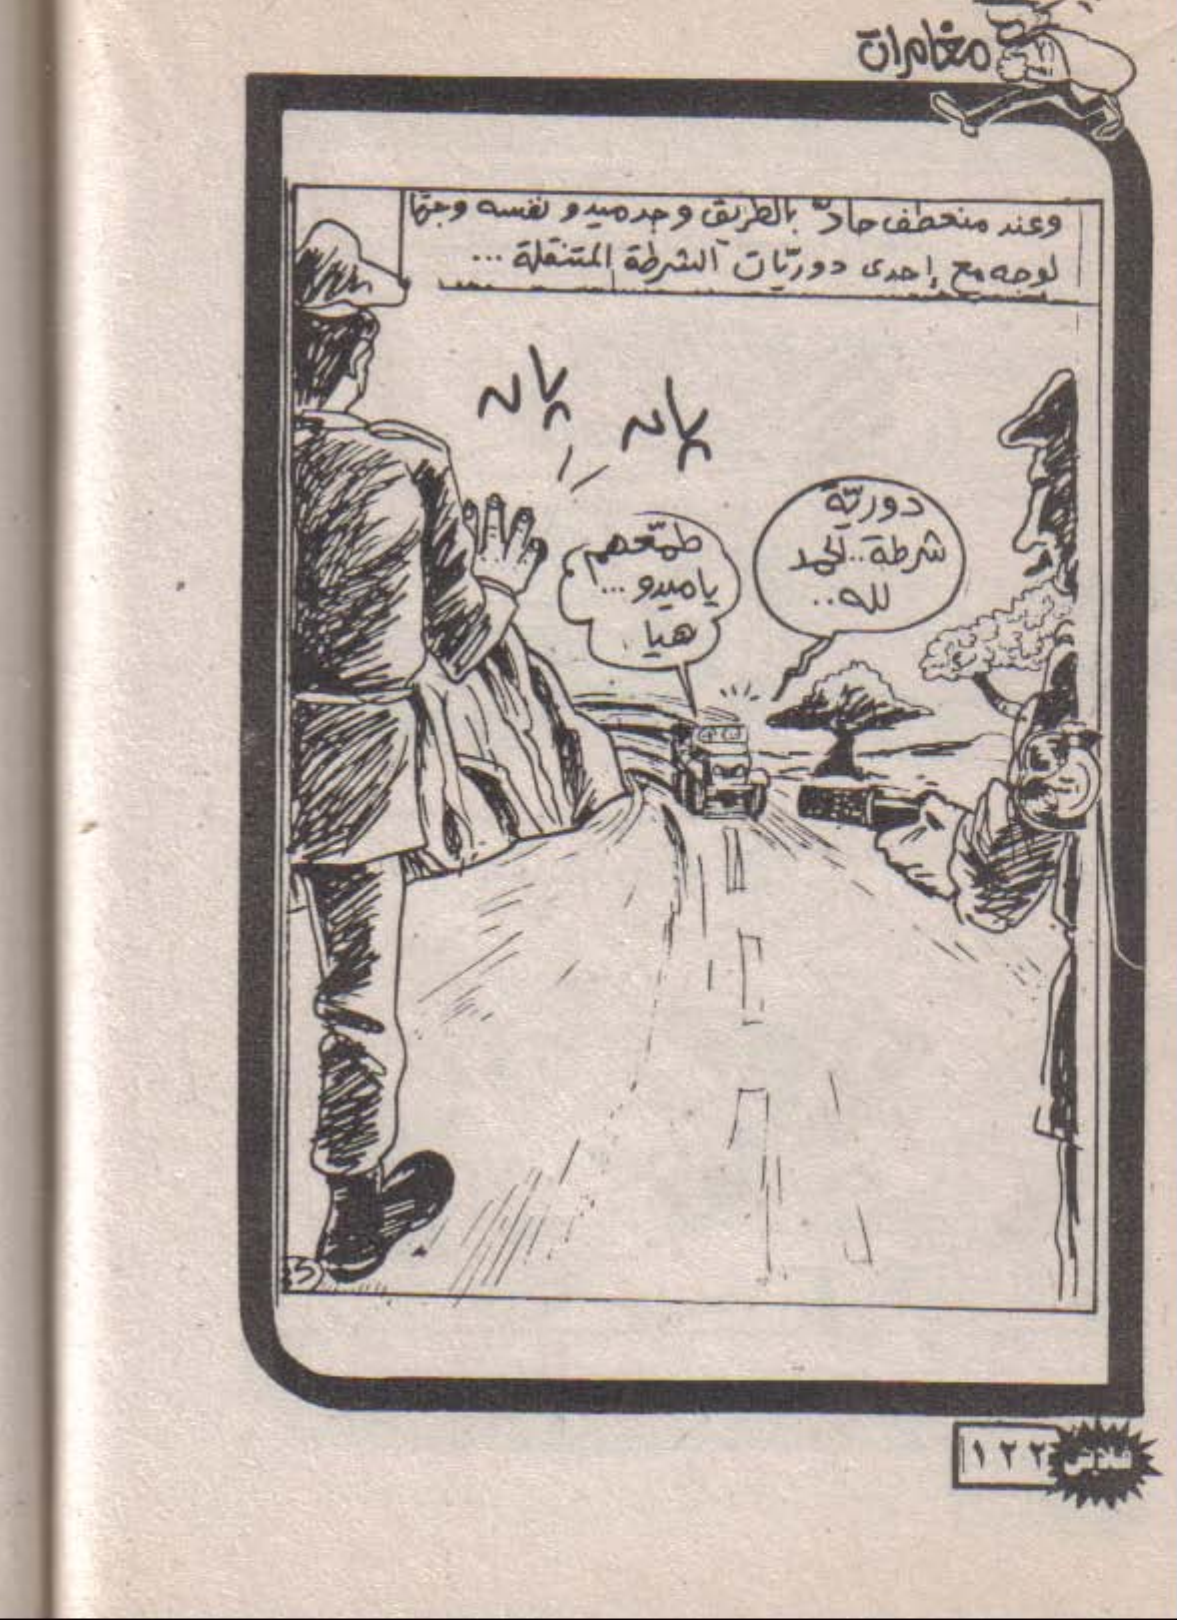 مغامرات
وعند منعطف حادّ بالطريق وجد ميدو نفسه وجهًا
لوجه مع إحدى دوريّات الشرطة المتنقلة ...
دوريّة
شرطة.. الحمد
لله..
طمّعهم
يا ميدو ...
هيا
فلاش
١٢٢